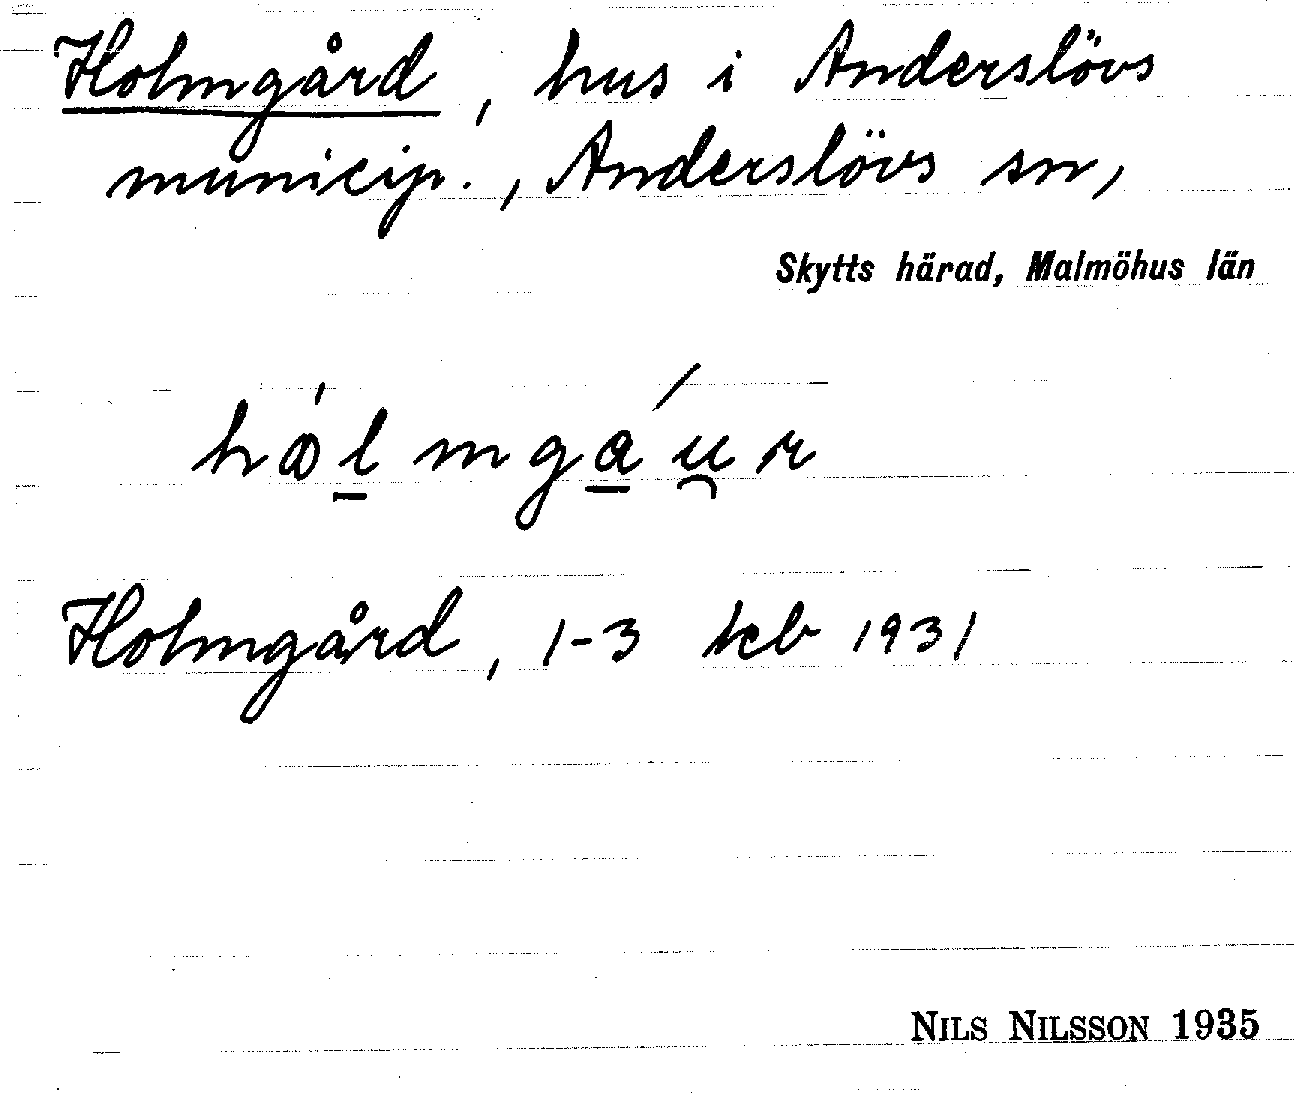 Holmgård, hus i Anderslövs
municip., Anderslövs sn,
Skytts härad, Malmöhus län
Holmgård, 1-3 teb 1931
NILS NILSSON 1935